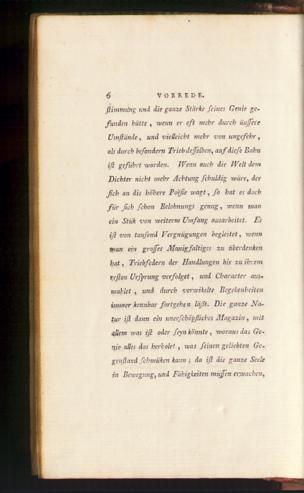 6 VORREDE.
ſtimmung und die ganze Stärke ſeines Genie ge-
funden hätte, wenn er oft mehr durch äuſſere
Umſtände, und vielleicht mehr von ungefehr,
als durch beſondern Trieb deſſelben, auf dieſe Bahn
iſt geführt worden. Wenn auch die Welt dem
Dichter nicht mehr Achtung ſchuldig wäre, der
ſich an die höhere Poëſie wagt, ſo hat es doch
für ſich ſchon Belohnungs genug, wenn man
ein Stük von weiterm Umfang ausarbeitet. Es
iſt von tauſend Vergnügungen begleitet, wenn
man ein groſſes Manigfaltiges zu überdenken
hat, Triebfedern der Handlungen bis zu ihrem
erſten Urſprung verfolget, und Character aus-
mahlet, und durch verwikelte Begebenheiten
immer kennbar fortgehen läßt. Die ganze Na-
tur iſt dann ein unerſchöpfliches Magazin, mit
allem was iſt oder ſeyn könnte, woraus das Ge-
nie alles das herholet, was ſeinen geliebten Ge-
genſtand ſchmüken kann; da iſt die ganze Seele
in Bewegung, und Fähigkeiten müſſen erwachen,